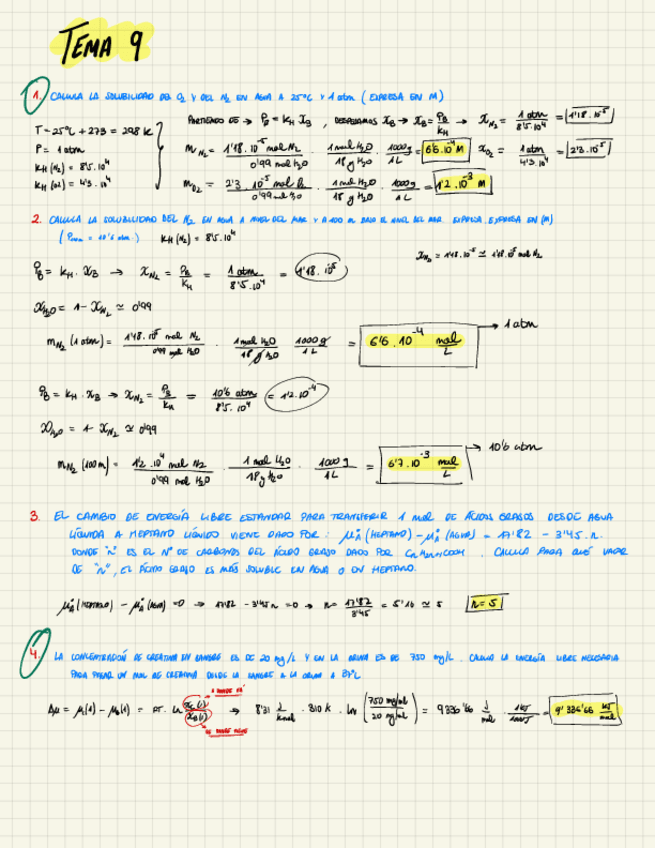 TEMA 9
1. CALCULA LA SOLUBILIDAD DEL O₂ Y DEL N₂ EN AGUA A 25ºC Y 1 atm (EXPRESA EN M)
T = 25ºC + 273 = 298 K
P = 1 atm
KH (N₂) = 8'5.10⁴
KH (O₂) = 4'3.10⁴
PARTIENDO DE → P_B = K_H X_B , DESPEJAMOS X_B → X_B = P_B/K_H → X_N₂ = 1 atm/8'5.10⁴ = 1'18.10⁻⁵
m N₂ = 1'18.10⁻⁵ mol N₂/0'99 mol H₂O . 1 mol H₂O/18 g H₂O . 1000 g/1 L = 6'6.10⁻⁴ M
X_O₂ = 1 atm/4'3.10⁴ = 2'3.10⁻⁵
m O₂ = 2'3.10⁻⁵ mol O₂/0'99 mol H₂O . 1 mol H₂O/18 g H₂O . 1000 g/1 L = 1'2.10⁻³ M
2. CALCULA LA SOLUBILIDAD DEL N₂ EN AGUA A NIVEL DEL MAR Y A 100 m BAJO EL NIVEL DEL MAR. EXPRESA EN (M)
KH (N₂) = 8'5.10⁴
X_N₂ = 1'18.10⁻⁵ ≃ 1'18.10⁻⁵ mol N₂
P_B = K_H . X_B → X_N₂ = P_B/K_H = 1 atm/8'5.10⁴ = 1'18.10⁻⁵
X_H₂O = 1 - X_N₂ ≃ 0'99
m N₂ (1 atm) = 1'18.10⁻⁵ mol N₂/0'99 mol H₂O . 1 mol H₂O/18 g H₂O . 1000 g/1 L = 6'6.10⁻⁴ mol/L → 1 atm
P_B = K_H . X_B → X_N₂ = P_B/K_H = 10'6 atm/8'5.10⁴ = 1'2.10⁻⁴
X_H₂O = 1 - X_N₂ ≃ 0'99
m N₂ (100 m) = 1'2.10⁻⁴ mol N₂/0'99 mol H₂O . 1 mol H₂O/18 g H₂O . 1000 g/1 L = 6'7.10⁻³ mol/L → 10'6 atm
3. EL CAMBIO DE ENERGÍA LIBRE ESTANDAR PARA TRANSFERIR 1 MOL DE ÁCIDOS GRASOS DESDE AGUA
LÍQUIDA A HEPTANO LÍQUIDO VIENE DADO POR: µ°A (HEPTANO) - µ°A (AGUA) = 17'82 - 3'45.n.
DONDE "n" ES EL Nº DE CARBONOS DEL ÁCIDO GRASO DADO POR . CALCULA PARA QUÉ VALOR
DE "n", EL ÁCIDO GRASO ES MÁS SOLUBLE EN AGUA O EN HEPTANO.
µ°A (HEPTANO) - µ°A (AGUA) = 0 → 17'82 - 3'45 n = 0 → n = 17'82/3'45 = 5'16 ≃ 5 n = 5
4. LA CONCENTRACIÓN DE CREATINA EN SANGRE ES DE 20 mg/L Y EN LA ORINA ES DE 750 mg/L. CALCULA LA ENERGÍA LIBRE NECESARIA
PARA PASAR UN MOL DE CREATINA DESDE LA SANGRE A LA ORINA A 37ºL
A DONDE VA
Δµ = - = RT . Ln → 8'31 . 310 K . ln (750 mg/ml/20 mg/ml) = 9336'66 J/mol . = 9'33666 KJ/mol